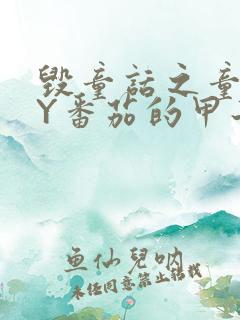 毁童话之童
Y番茄的甲
鱼仙儿呐
未经同意禁止转载